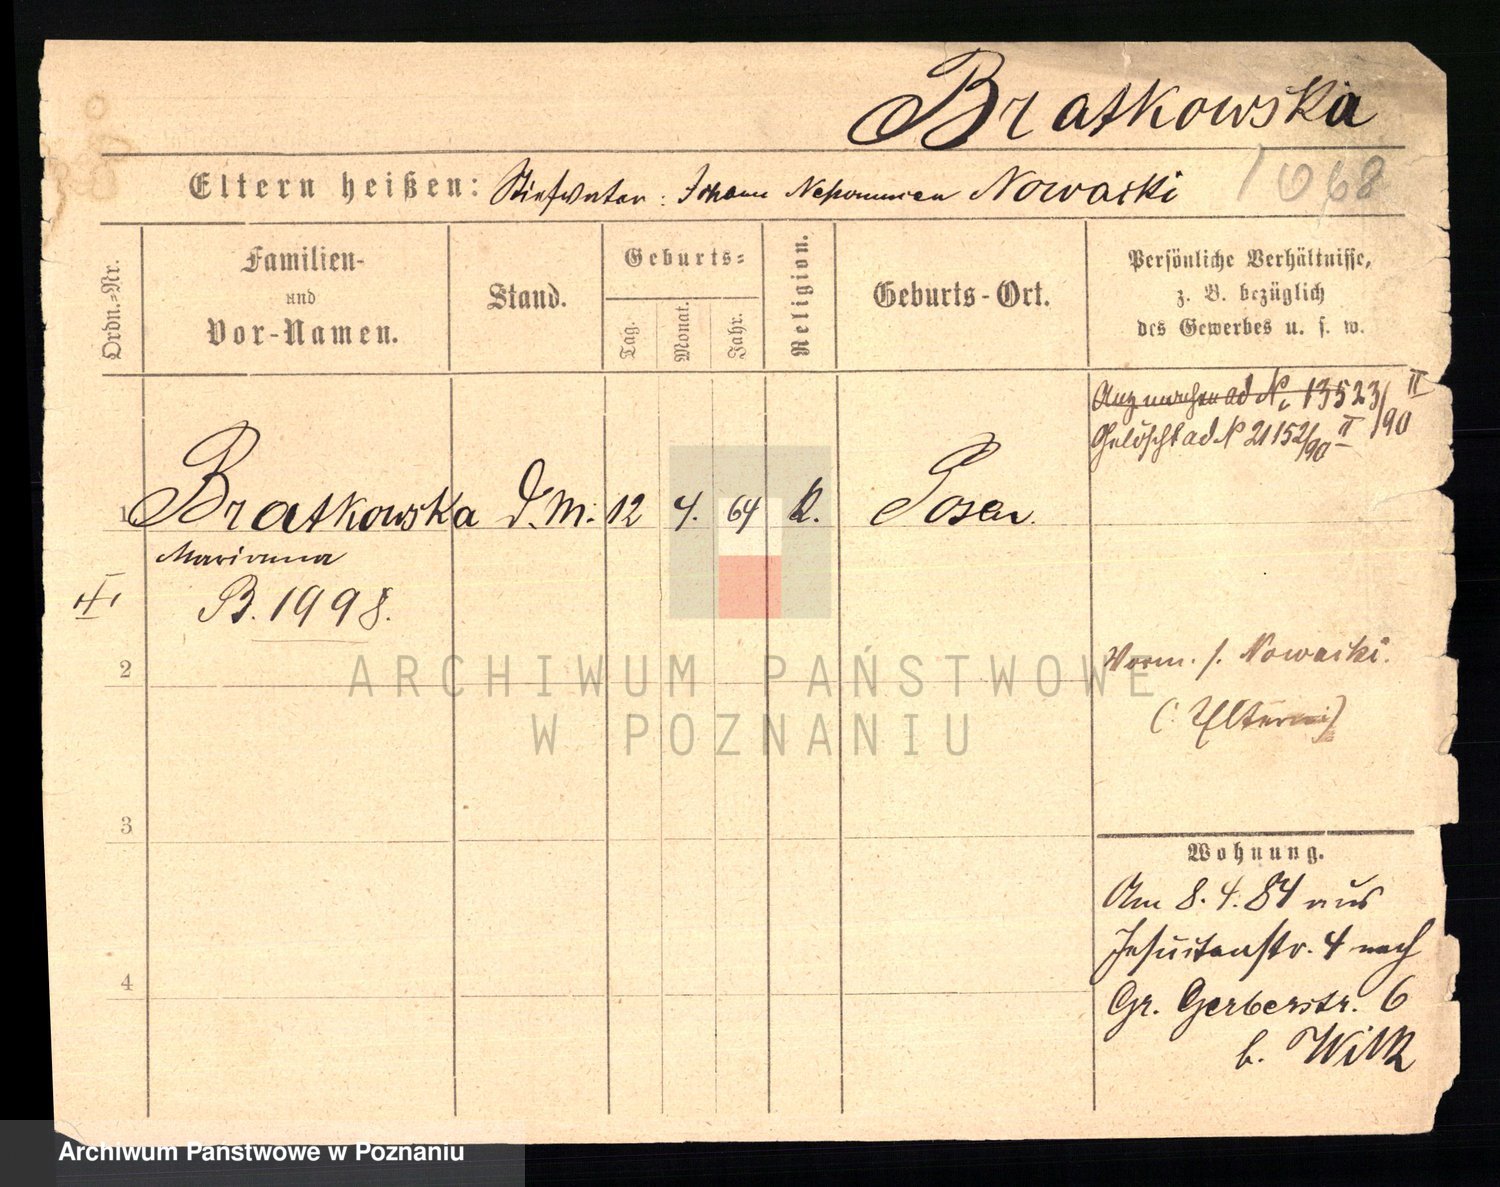 Bratkowska
Eltern heißen: Stiefvater: Johann Nepomucen Nowacki
1068
Ordn.-Nr.
Familien-
und
Vor-Namen.
Stand.
Geburts-
Tag.
Monat.
Jahr.
Religion.
Geburts-Ort.
Persönliche Verhältnisse,
z. B. bezüglich
des Gewerbes u. s. w.
ad N. 13523/90 II
Gelöscht ad N 21152/90 II
1 Bratkowska d. M. 12 4. 64 k. Posen.
Marianna
B. 1998.
2
Vorm. s. Nowacki.
(: Eltern :)
3
Wohnung.
Am 8. 4. 84 aus
Jesuitenstr. 4 nach
4
Gr. Gerberstr. 6
b. Wilk
ARCHIWUM PAŃSTWOWE
W POZNANIU
Archiwum Państwowe w Poznaniu